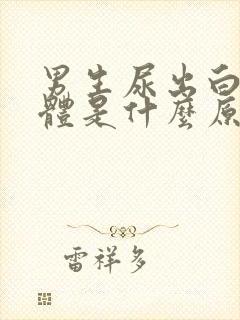 男生尿出白
體是什麼原
雷祥多